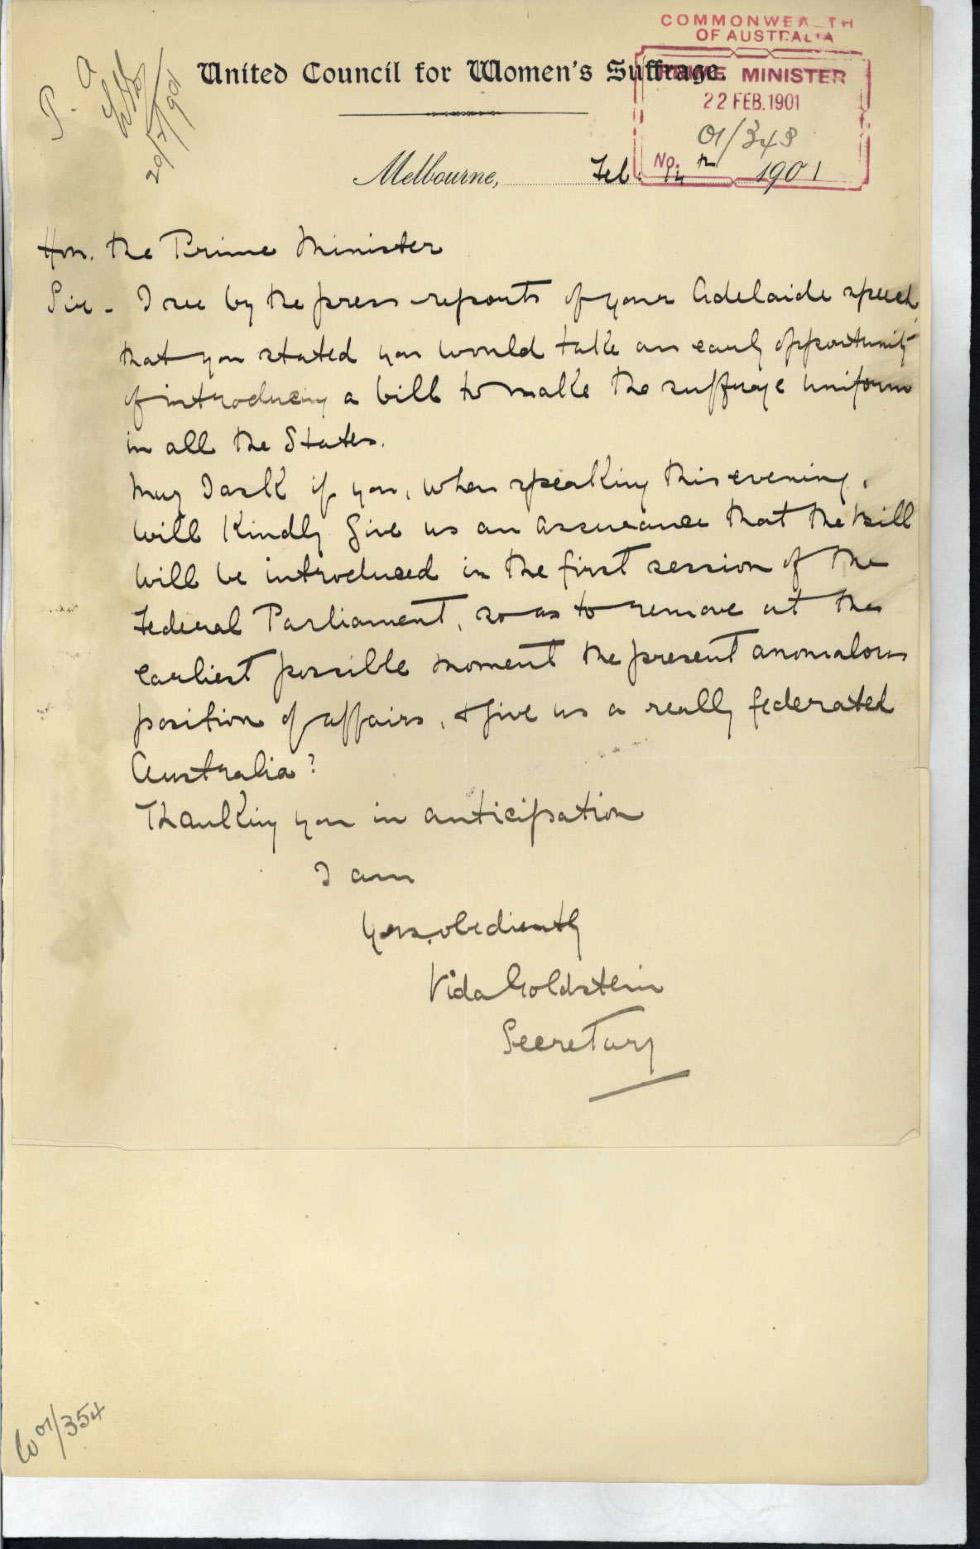 COMMONWEALTH
OF AUSTRALIA
P. A
20/7/1901
United Council for Women's Suffrage.
PRIME MINISTER
22 FEB. 1901
01/343
No.
Melbourne, Feb. 1901
Hon. the Prime Minister
Sir - I see by the press reports of your Adelaide speech
that you stated you would take an early opportunity
of introducing a bill to make the suffrage uniform
in all the States.
May I ask if you, when speaking this evening,
will kindly give us an assurance that the bill
will be introduced in the first session of the
Federal Parliament, so as to remove at the
earliest possible moment the present anomalous
position of affairs, & give us a really federated
Australia?
Thanking you in anticipation
I am
Yours obediently
Vida Goldstein
Secretary
01/354